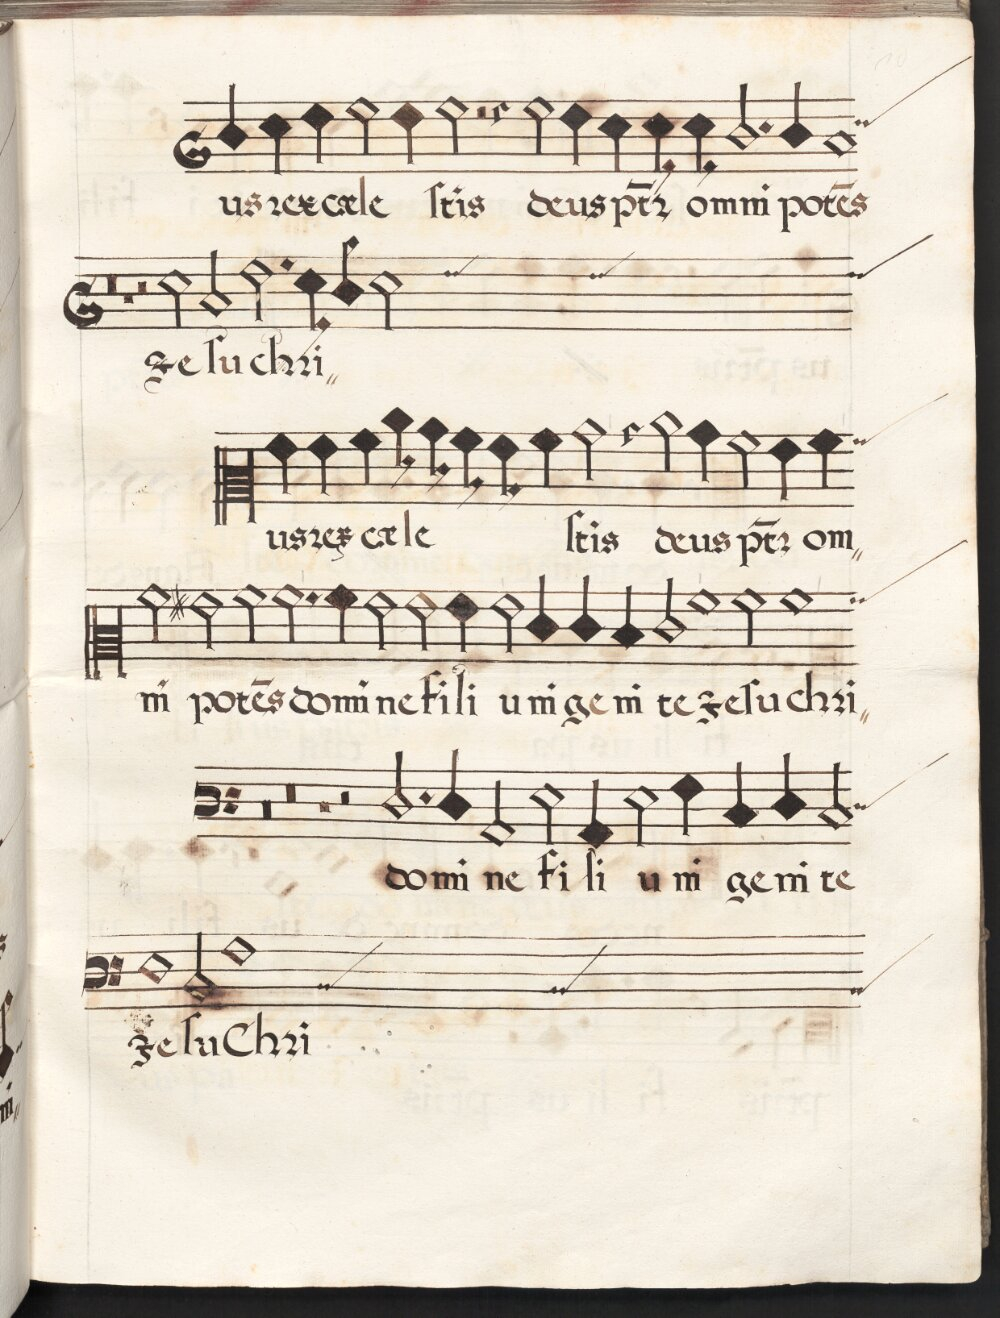 us rex cæle stis deus pt̄r omni potēs
Ɀesu chri„
us rex cæle stis deus pt̄r om„
ni potēs domine fili unigenite Ɀesu chri„
domine fili unigenite
Ɀesu Chri